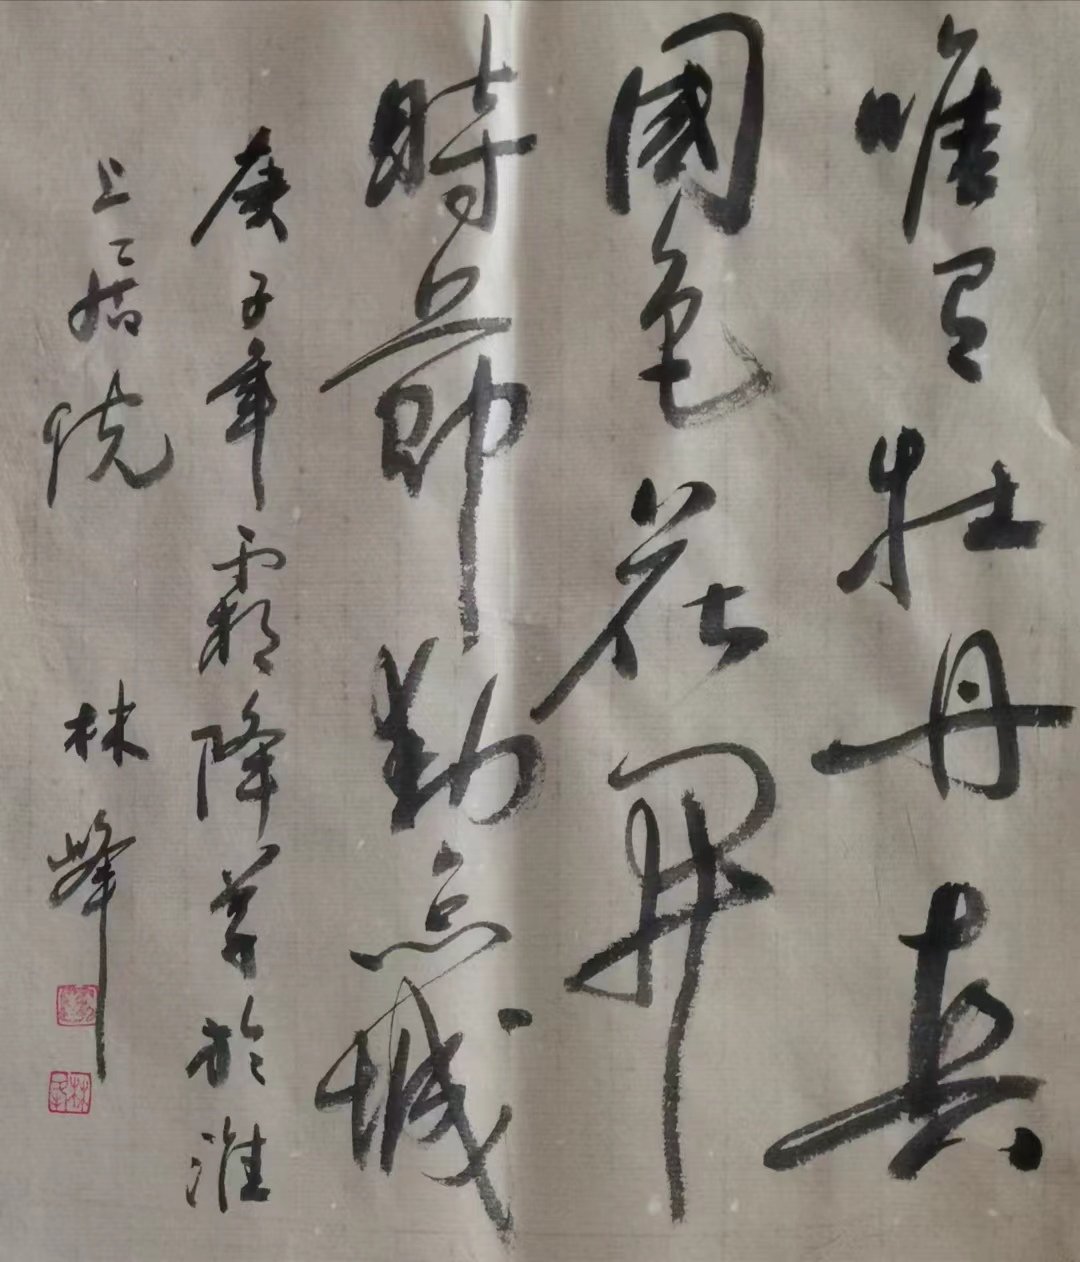 唯有牡丹真
國色花開
時節動京城
庚子年霜降於淮
上居
林峰